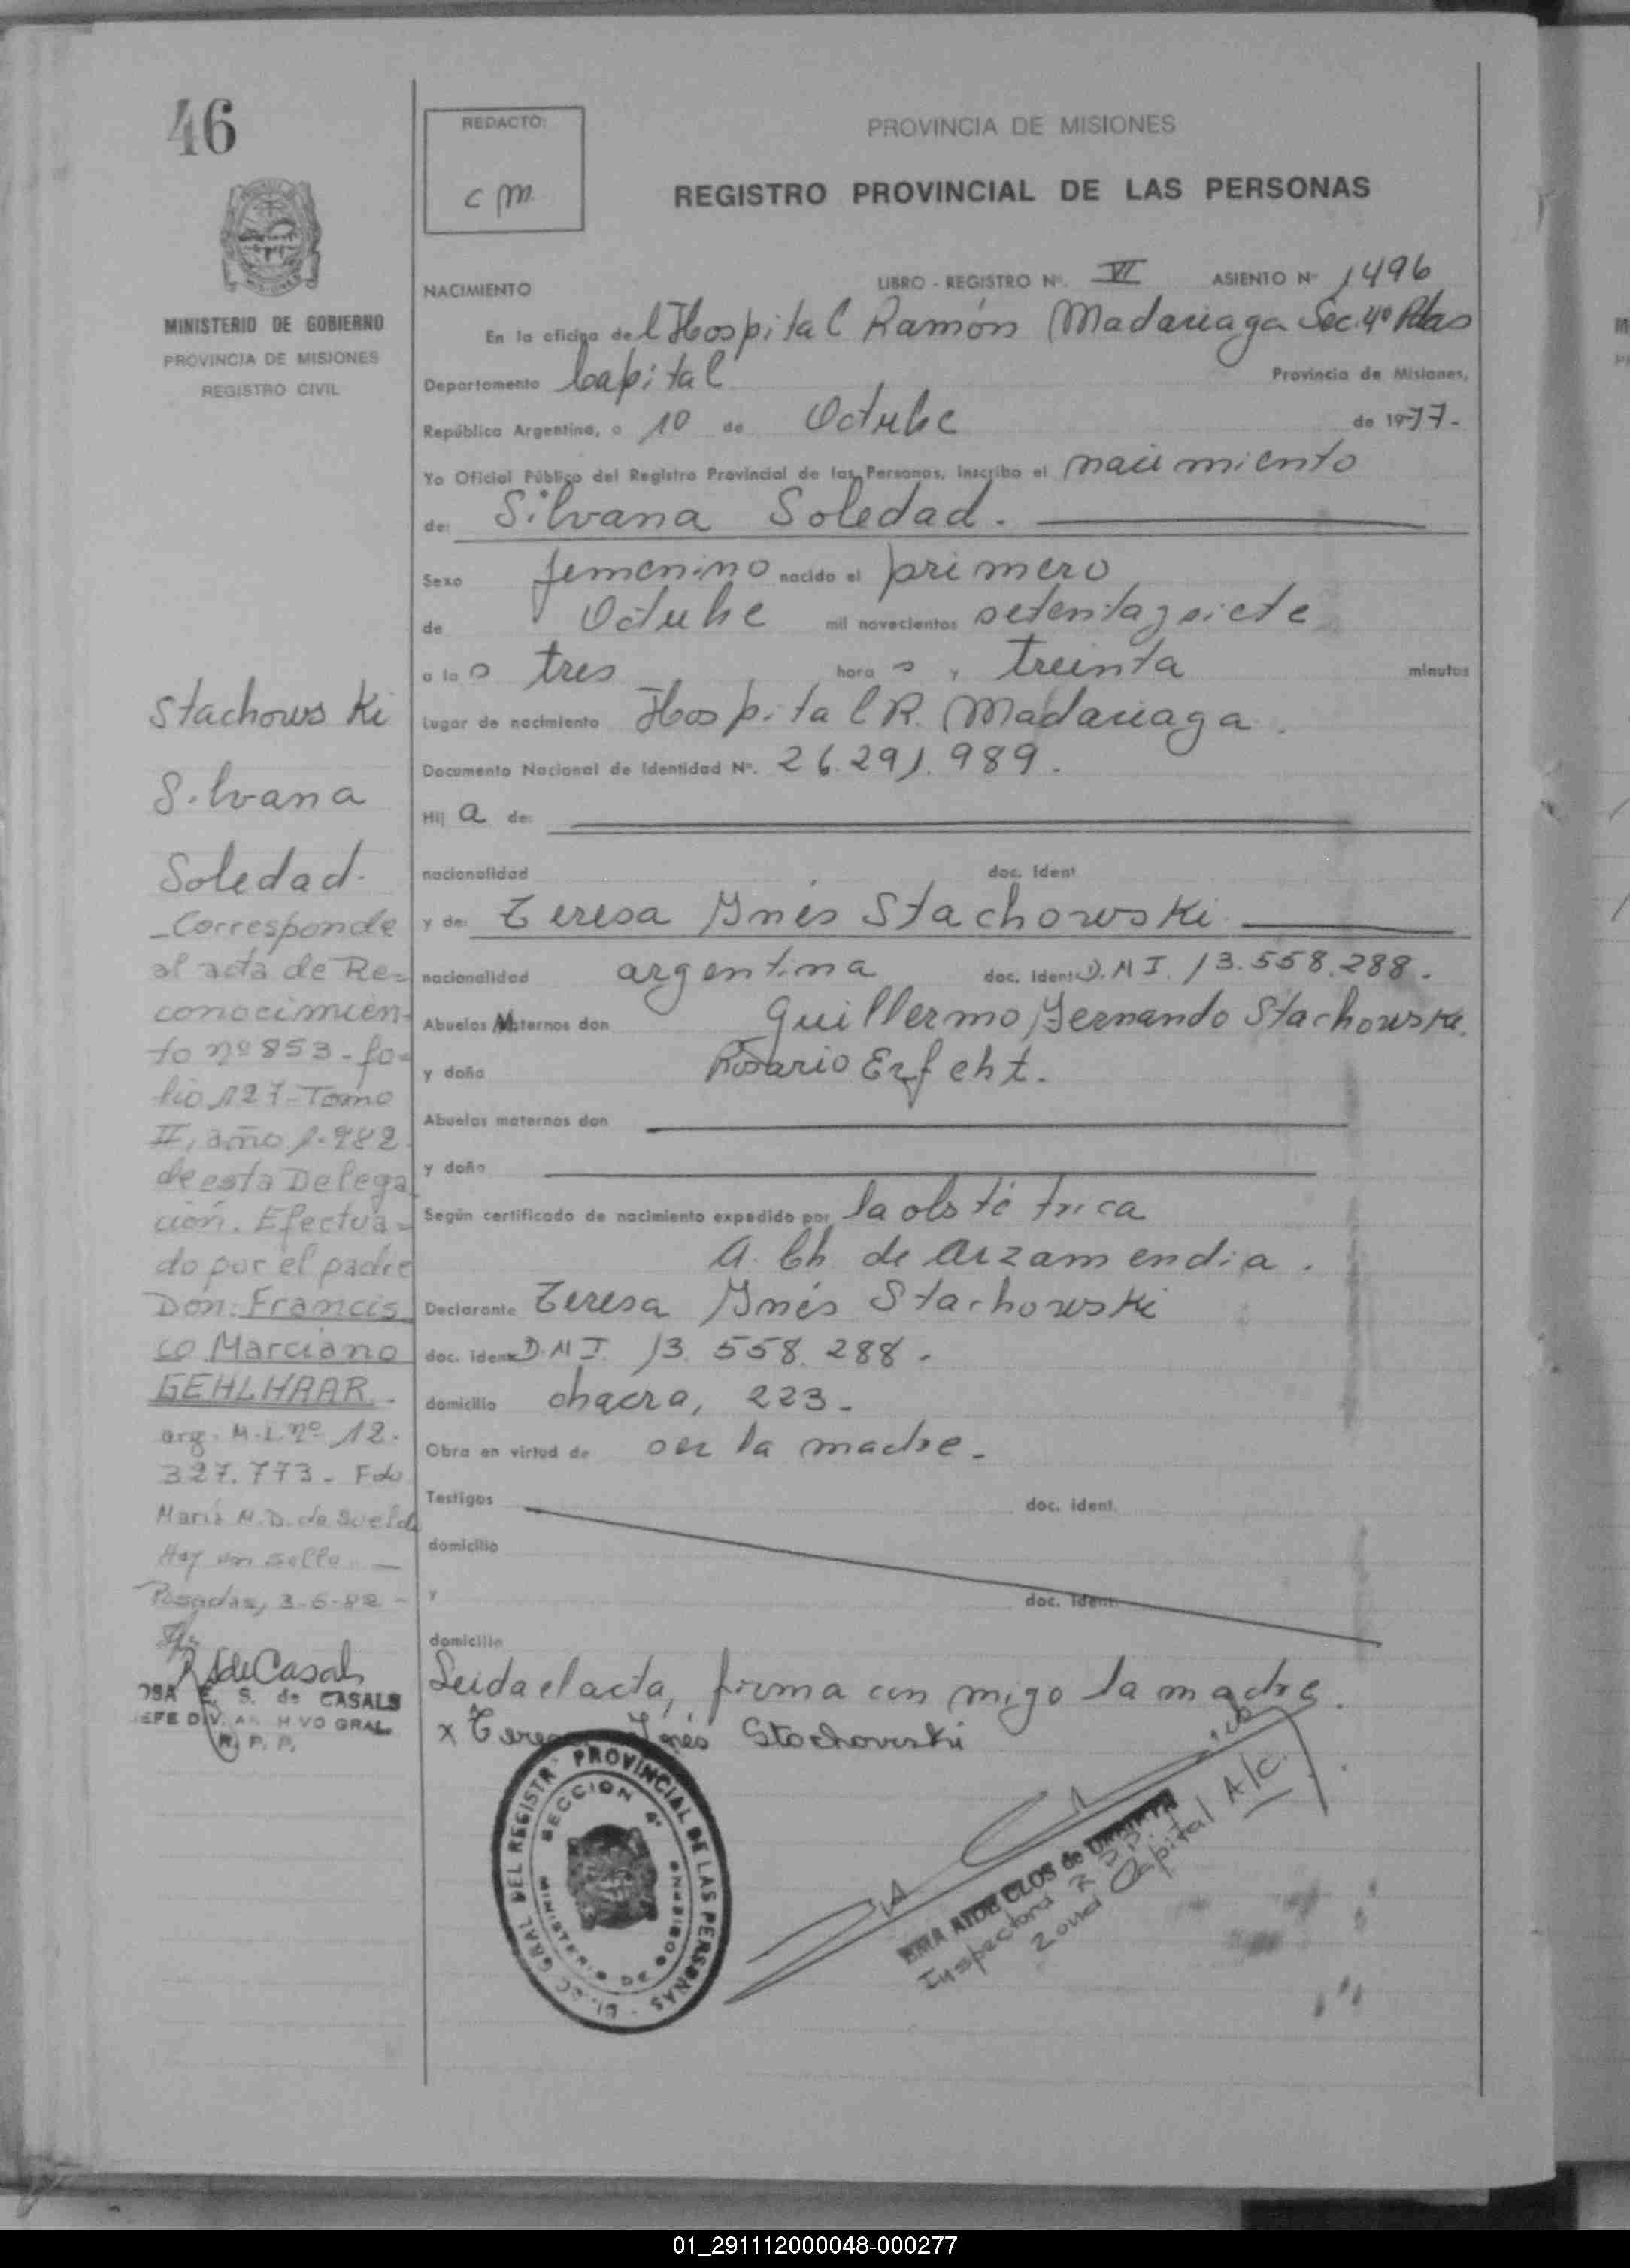 46
REDACTO:
C M.
PROVINCIA DE MISIONES
REGISTRO PROVINCIAL DE LAS PERSONAS
MINISTERIO DE GOBIERNO
PROVINCIA DE MISIONES
REGISTRO CIVIL
NACIMIENTO LIBRO - REGISTRO Nº. VI ASIENTO Nº 1496
En la oficina del Hospital Ramón Madariaga Sec. 4º Pdas
Departamento Capital Provincia de Misiones,
República Argentina, a 10 de Octubre de 1977-
Yo Oficial Público del Registro Provincial de las Personas, inscribo el nacimiento
de: Silvana Soledad.
Sexo femenino nacido el primero
de Octubre mil novecientos setenta y siete
a las tres horas y treinta minutos
Lugar de nacimiento Hospital R. Madariaga.
Documento Nacional de Identidad Nº. 26.291.989.
Hij a de:
nacionalidad doc. ident.
y de: Teresa Ynés Stachowski
nacionalidad argentina doc. ident. D.N I. 13.558.288.
Abuelos Maternos don Guillermo Fernando Stachowski.
y doña Rosario Erfcht.
Abuelos maternos don
y doña
Según certificado de nacimiento expedido por la obstétrica
A. Ch. de Arzamendia.
Declarante Teresa Ynés Stachowski
doc. ident. D.N I. 13.558.288.
domicilio chacra, 223-
Obra en virtud de ser la madre-
Testigos doc. ident.
domicilio
y doc. ident.
domicilio
Leida el acta, firma con migo la madre.
x Teresa Inés Stachowski
Stachowski
Silvana
Soledad.
-Corresponde
al acta de Re=
conocimien-
to nº 853-fo=
lio 127-Tomo
II, año 1.982.
de esta Delega
ción. Efectua=
do por el padre
Don: Francis
co Marciano
GEHLHAAR.
arg. M.I. nº 12.
327.773- Fdo
María M.D. de Sueldo
Hay un sello.-
Posadas, 3-6-82-
R S de Casals
OSA E. S. de CASALS
JEFE DIV. ARCHIVO GRAL.
R. P. P.
DIREC. GRAL. DEL REGISTRO PROVINCIAL DE LAS PERSONAS
SECCION 4ª
MINISTERIO DE GOBIERNO
CLOS de
Inspectora R.P.P.
Zona Capital A/C.
01_291112000048-000277